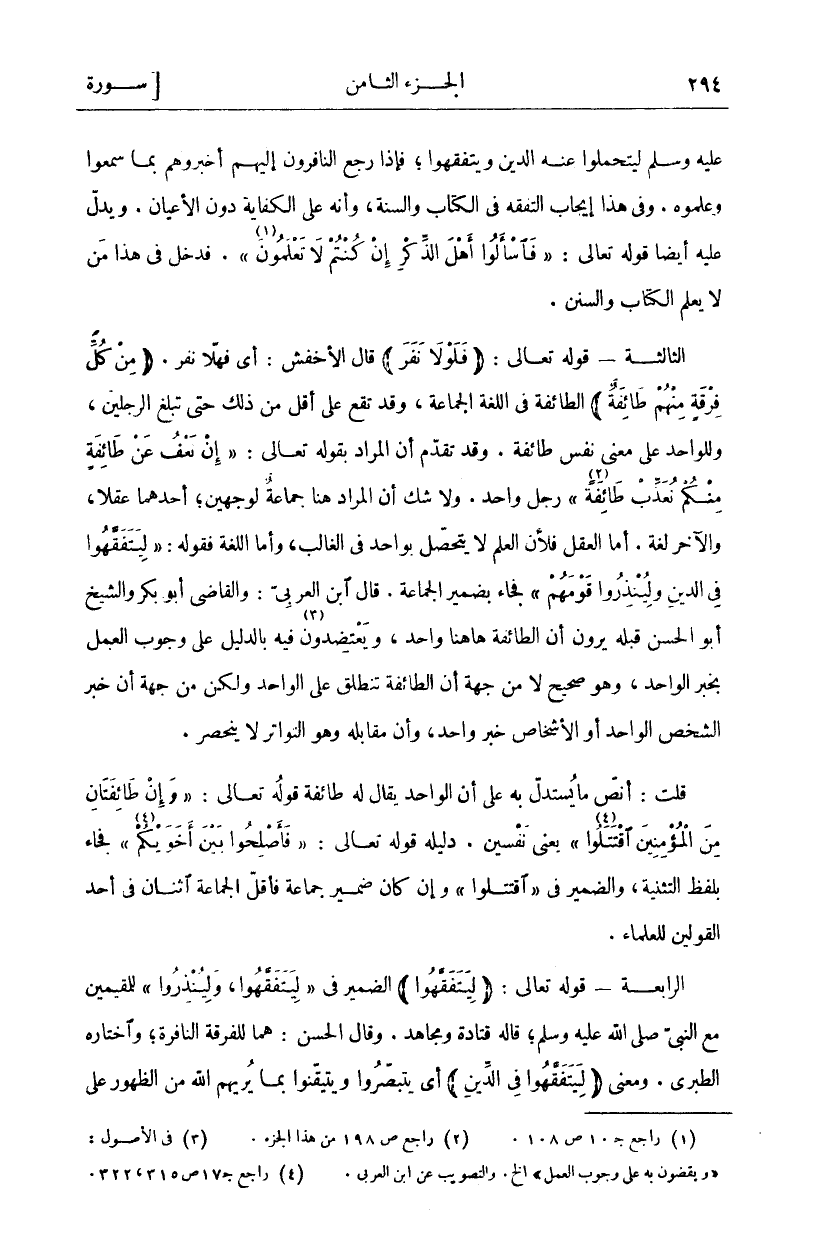 ٢٩٤ الجـــزء الثـامن [ ســـورة
عليه وسـلم ليتحملوا عنـه الدين ويتفقهوا ؛ فإذا رجع النافرون إليهـم أخبروهم بمـا سمعوا
وعلموه . وفى هذا إيجاب التفقه فى الكتاب والسنة، وأنه على الكفاية دون الأعيان . ويدلّ
عليه أيضا قوله تعالى : « فَٱسْأَلُوا أَهْلَ الذِّكْرِ إِنْ كُنْتُمْ لَا تَعْلَمُونَ (١) » . فدخل فى هذا مَن
لا يعلم الكتاب والسنن .
الثالثـــة – قوله تعـالى : ﴿ فَلَوْلَا نَفَرَ ﴾ قال الأخفش : أى فهلّا نفر . ﴿ مِنْ كُلِّ
فِرْقَةٍ مِنْهُمْ طَائِفَةٌ ﴾ الطائفة فى اللغة الجماعة ، وقد تقع على أقل من ذلك حتى تبلغ الرجلين ،
وللواحد على معنى نفس طائفة . وقد تقدّم أن المراد بقوله تعـالى : « إِنْ نَعْفُ عَنْ طَائِفَةٍ
مِنْـكُمْ نُعَذِّبْ طَائِفَةً (٢) » رجل واحد . ولا شك أن المراد هنا جماعةٌ لوجهين؛ أحدهما عقلا،
والآخر لغة . أما العقل فلأن العلم لا يتحصّل بواحد فى الغالب، وأما اللغة فقوله : « لِيَتَفَقَّهُوا
فِى الدينِ وِليُنْذِرُوا قَوْمَهُمْ » فجاء بضمير الجماعة . قال ٱبن العربىّ : والقاضى أبو بكر والشيخ
أبو الحسن قبله يرون أن الطائفة هاهنا واحد ، ويَعْتضِدون (٣) فيه بالدليل على وجوب العمل
بخبر الواحد ، وهو صحيح لا من جهة أن الطائفة تنطلق على الواحد ولكن من جهة أن خبر
الشخص الواحد أو الأشخاص خبر واحد، وأن مقابله وهو التواتر لا ينحصر .
قلت : أنصّ ما يُستدلّ به على أن الواحد يقال له طائفة قولُه تعـالى : « وَإِنْ طَائِفَتَانِ
مِنَ الْمُؤْمِنِينَ ٱقْتَتَلُوا (٤) » يعنى نَفْسين . دليله قوله تعـالى : « فَأَصْلِحُوا بَيْنَ أَخَوَيْكُمْ (٤) » فجاء
بلفظ التثنية، والضمير فى «ٱقتتـلوا » وإن كان ضمـير جماعة فأقلّ الجماعة ٱثنـان فى أحد
القولين للعلماء .
الرابعــة – قوله تعالى : ﴿ لِيَتَفَقَّهُوا ﴾ الضمير فى « لِيَتَفَقَّهُوا، وَلِيُنْذِرُوا » للمقيمين
مع النبىّ صلى الله عليه وسلم؛ قاله قتادة ومجاهد . وقال الحسن : هما للفرقة النافرة؛ وٱختاره
الطبرى . ومعنى ﴿ لِيَتَفَقَّهُوا فِى الدِّينِ ﴾ أى يتبصّرُوا ويتيقّنوا بمـا يُريهم الله من الظهور على
(١) راجع جـ ١٠ ص ١٠٨ . (٢) راجع ص ١٩٨ من هذا الجزء . (٣) فى الأصـول :
«ويقضون به على وجوب العمل» الخ . والتصويب عن ابن العربى . (٤) راجع جـ ١٧ ص ٣١٥ ، ٣٢٢ .